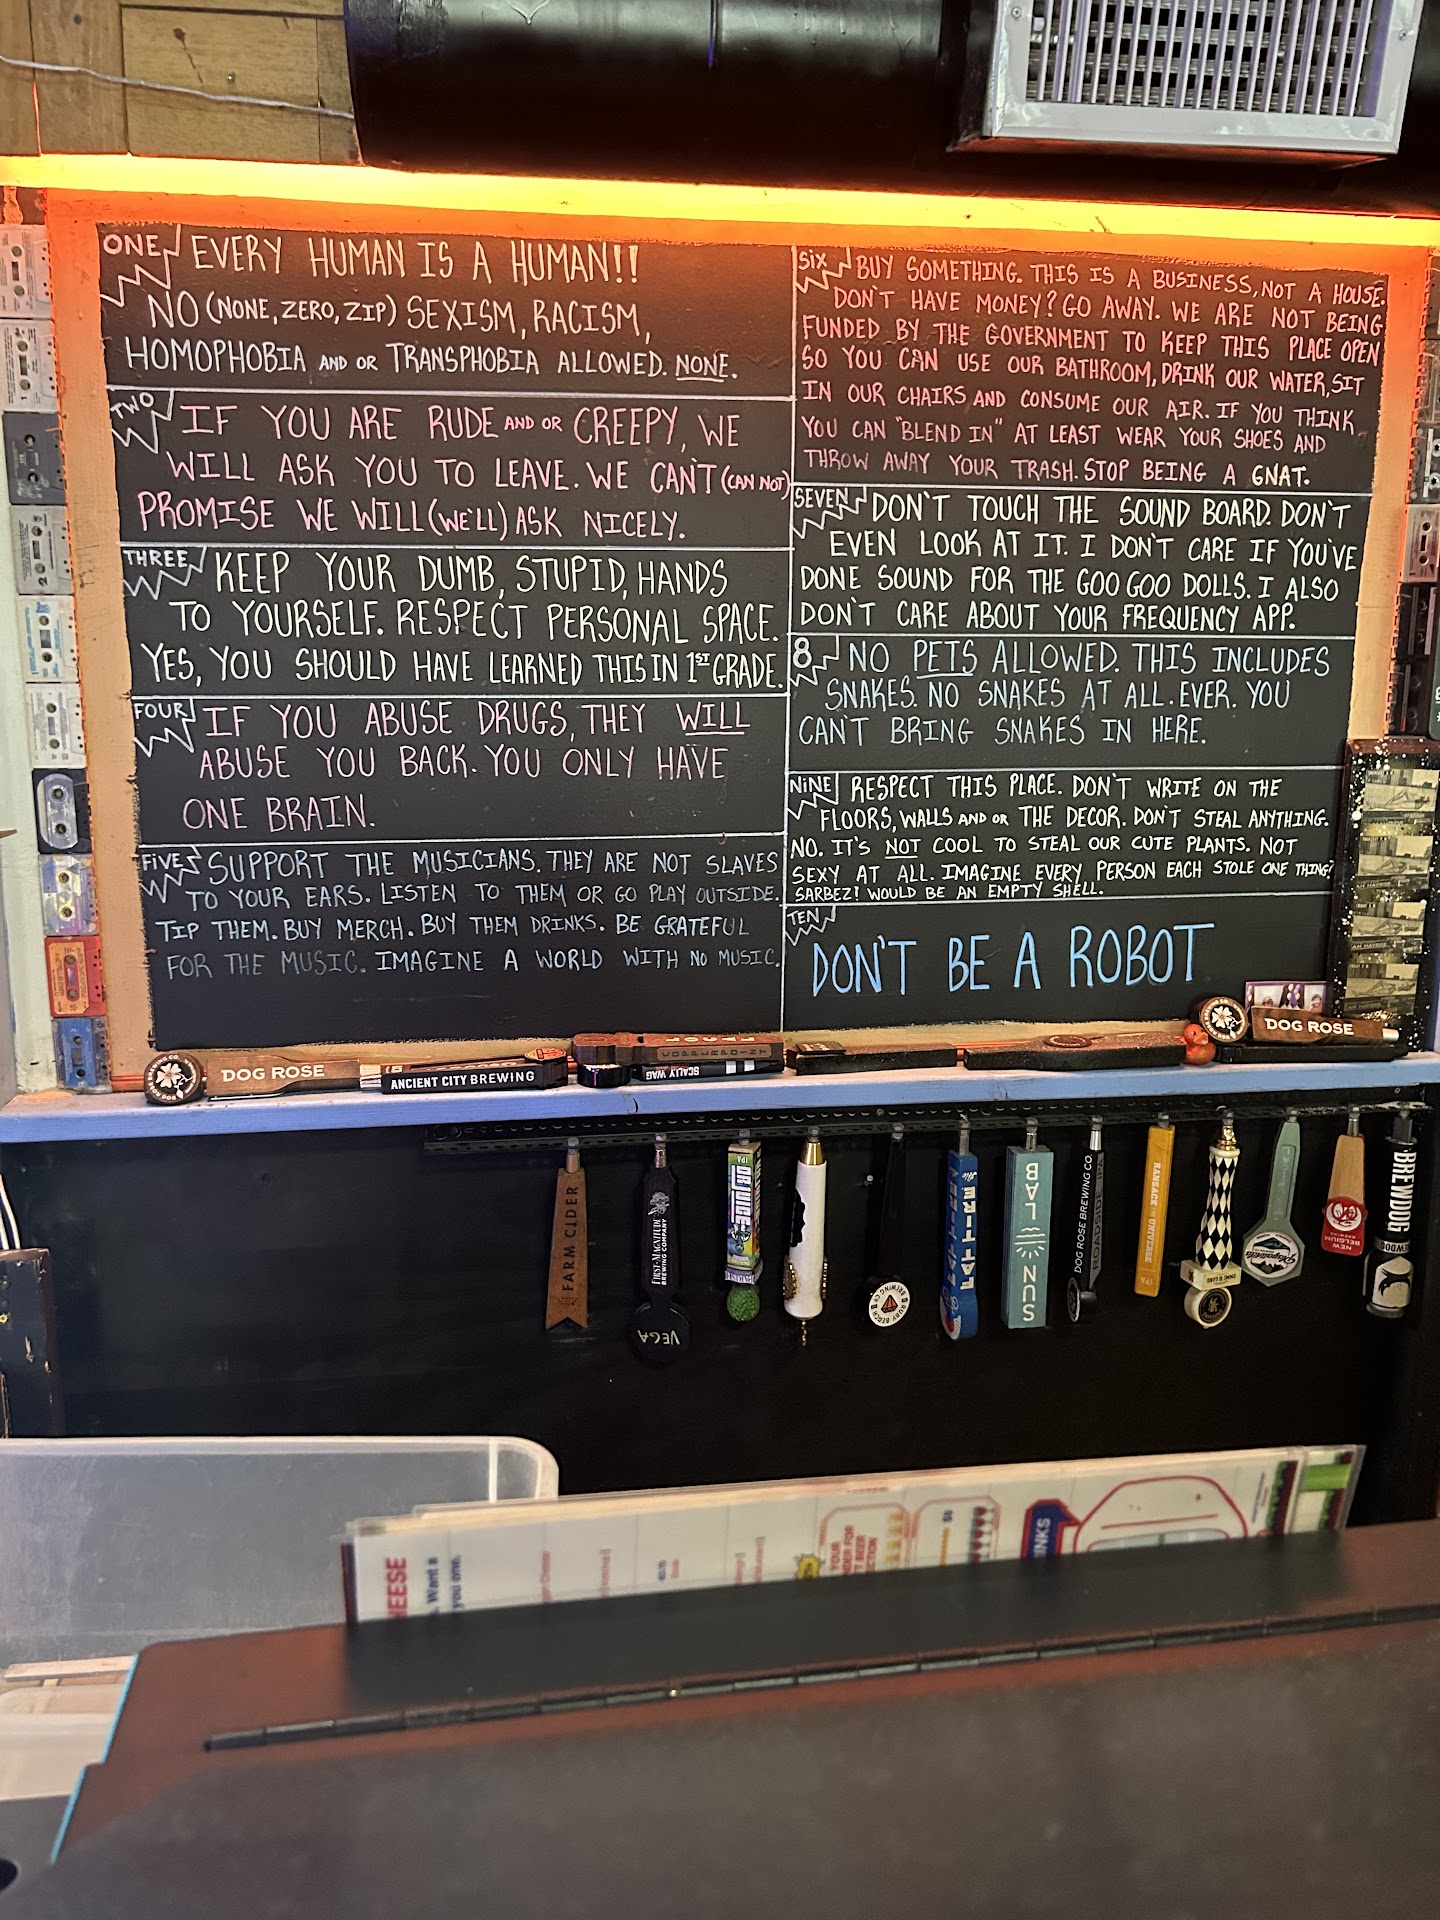 ONE
EVERY HUMAN IS A HUMAN!!
NO (NONE, ZERO, ZIP) SEXISM, RACISM,
HOMOPHOBIA AND OR TRANSPHOBIA ALLOWED. NONE.
TWO
IF YOU ARE RUDE AND OR CREEPY, WE
WILL ASK YOU TO LEAVE. WE CAN'T (CAN NOT)
PROMISE WE WILL (WE'LL) ASK NICELY.
THREE
KEEP YOUR DUMB, STUPID, HANDS
TO YOURSELF. RESPECT PERSONAL SPACE.
YES, YOU SHOULD HAVE LEARNED THIS IN 1ST GRADE.
FOUR
IF YOU ABUSE DRUGS, THEY WILL
ABUSE YOU BACK. YOU ONLY HAVE
ONE BRAIN.
FIVE
SUPPORT THE MUSICIANS. THEY ARE NOT SLAVES
TO YOUR EARS. LISTEN TO THEM OR GO PLAY OUTSIDE.
TIP THEM. BUY MERCH. BUY THEM DRINKS. BE GRATEFUL
FOR THE MUSIC. IMAGINE A WORLD WITH NO MUSIC.
SIX
BUY SOMETHING. THIS IS A BUSINESS, NOT A HOUSE.
DON'T HAVE MONEY? GO AWAY. WE ARE NOT BEING
FUNDED BY THE GOVERNMENT TO KEEP THIS PLACE OPEN
SO YOU CAN USE OUR BATHROOM, DRINK OUR WATER, SIT
IN OUR CHAIRS AND CONSUME OUR AIR. IF YOU THINK
YOU CAN "BLEND IN" AT LEAST WEAR YOUR SHOES AND
THROW AWAY YOUR TRASH. STOP BEING A GNAT.
SEVEN
DON'T TOUCH THE SOUND BOARD. DON'T
EVEN LOOK AT IT. I DON'T CARE IF YOU'VE
DONE SOUND FOR THE GOO GOO DOLLS. I ALSO
DON'T CARE ABOUT YOUR FREQUENCY APP.
8
NO PETS ALLOWED. THIS INCLUDES
SNAKES. NO SNAKES AT ALL. EVER. YOU
CAN'T BRING SNAKES IN HERE.
NINE
RESPECT THIS PLACE. DON'T WRITE ON THE
FLOORS, WALLS AND OR THE DECOR. DON'T STEAL ANYTHING.
NO. IT'S NOT COOL TO STEAL OUR CUTE PLANTS. NOT
SEXY AT ALL. IMAGINE EVERY PERSON EACH STOLE ONE THING?
SARBEZ! WOULD BE AN EMPTY SHELL.
TEN
DON'T BE A ROBOT
DOG ROSE
ANCIENT CITY BREWING
LOCAL
COPPERPOINT
SCALLY WAG
DOG ROSE
FARM CIDER
FIRST MAGNITUDE
BREWING COMPANY
VEGA
IPA
RUBY BEACH
BREWING CO
FAT TIRE
SUN LAB
DOG ROSE BREWING CO.
RANSACK THE UNIVERSE
IPA
NEW
BELGIUM
BREWDOG
DRINKS